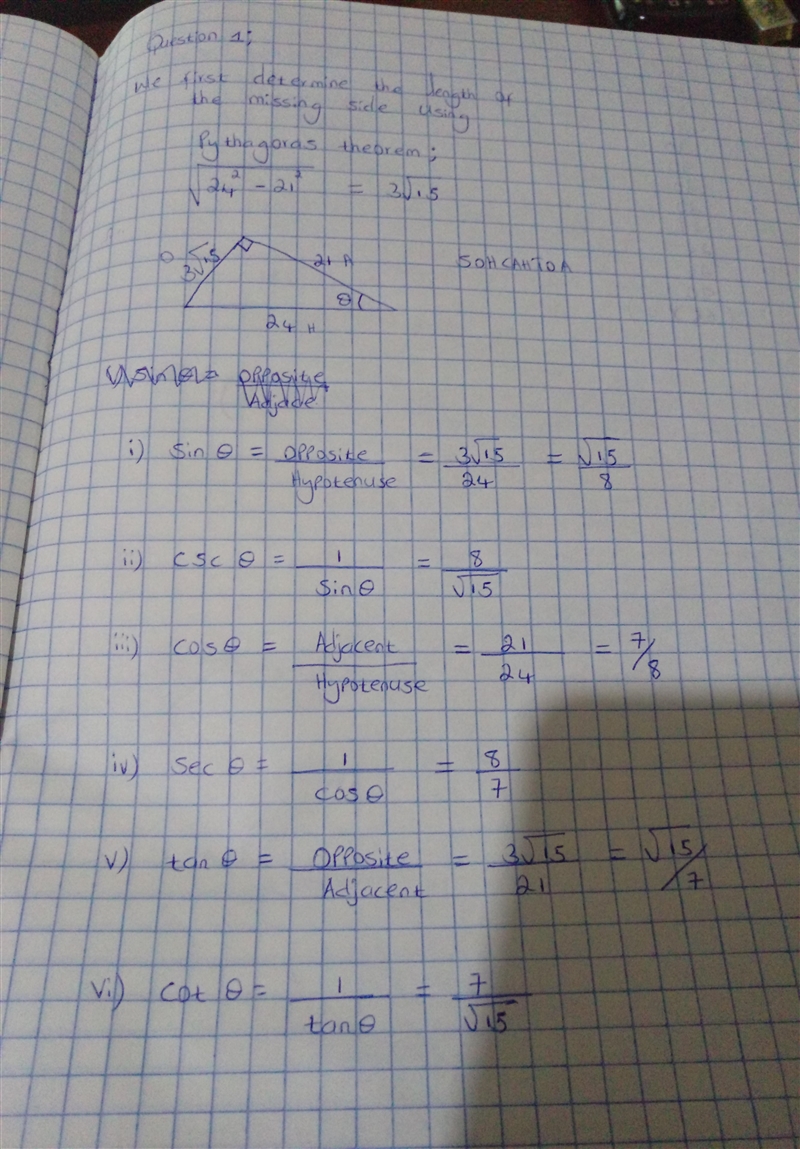 Question 1;
We first determine the length of
the missing side using
Pythagoras theorem;
√24² - 21² = 3√15
O 3√15 21 A SOHCAHTOA
θ
24 H
i) sin θ = Opposite / Adjade
i) sin θ = Opposite / Hypotenuse = 3√15 / 24 = √15 / 8
ii) csc θ = 1 / sin θ = 8 / √15
iii) cos θ = Adjacent / Hypotenuse = 21 / 24 = 7/8
iv) sec θ = 1 / cos θ = 8 / 7
v) tan θ = Opposite / Adjacent = 3√15 / 21 = √15/7
vi) cot θ = 1 / tan θ = 7 / √15